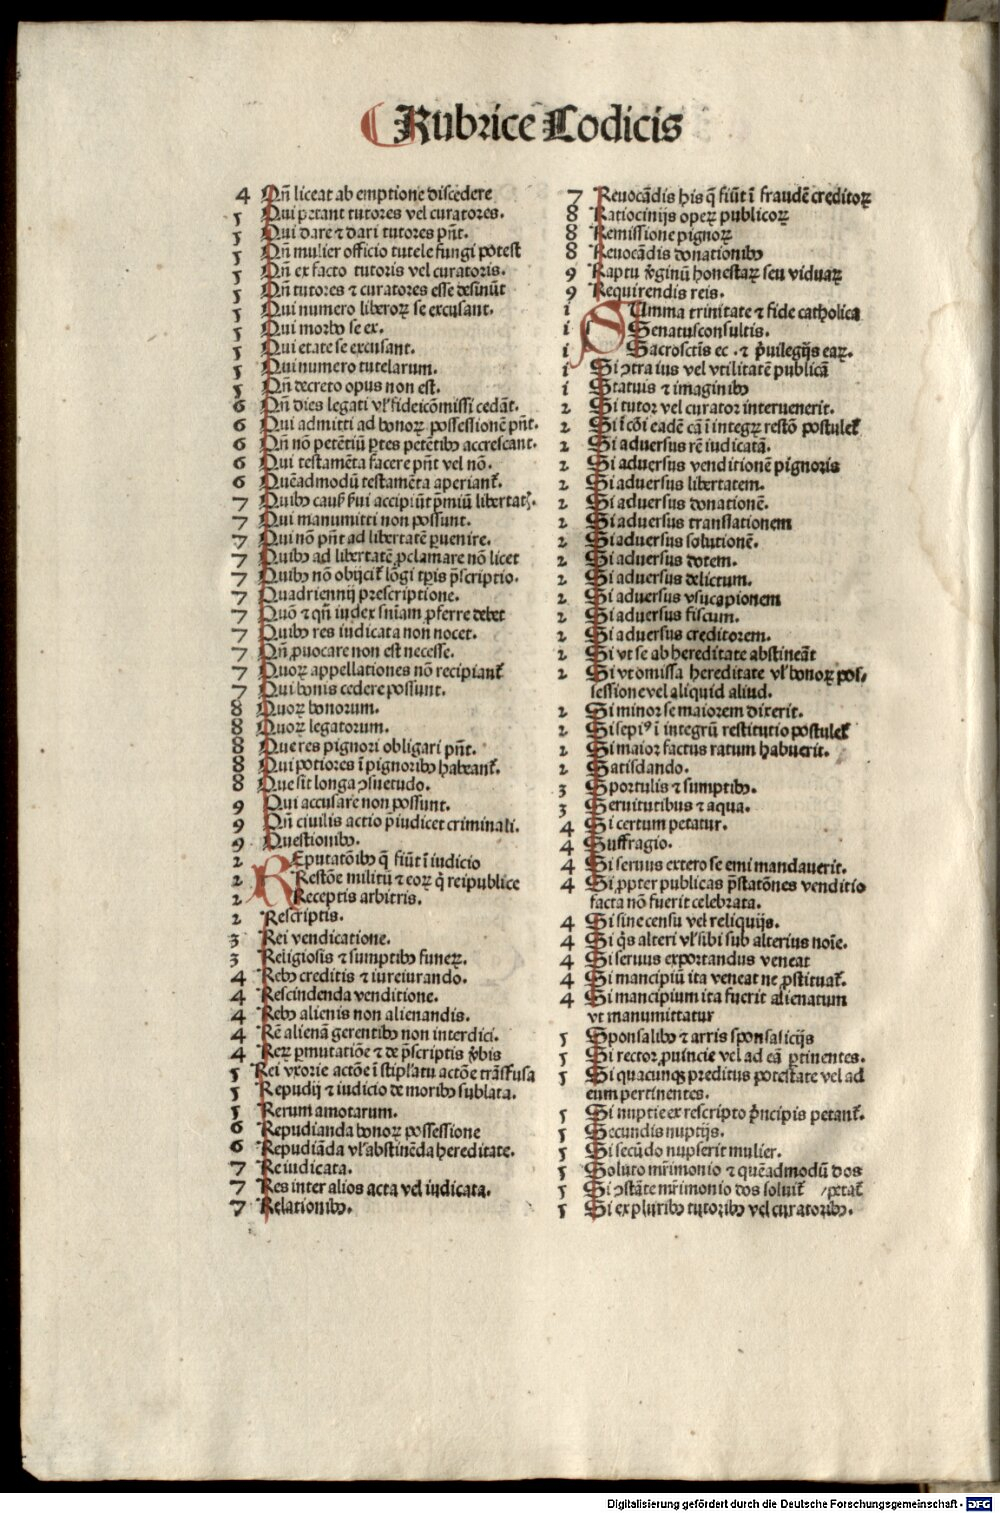 Rubrice Codicis
4 Qñ liceat ab emptione discedere
5 Qui petant tutores vel curatores.
5 Qui dare ⁊ dari tutores pñt.
5 Qñ mulier officio tutele fungi potest
5 Qñ ex facto tutoris vel curatoris.
5 Qñ tutores ⁊ curatores esse desinũt
5 Qui numero liberoꝝ se excusant.
5 Qui morbo se ex.
5 Qui etate se excusant.
5 Qui numero tutelarum.
5 Qñ decreto opus non est.
6 Qñ dies legati vl̓ fideicõmissi cedãt.
6 Qui admitti ad bonoꝝ possessionẽ pñt.
6 Qñ nõ petẽtiũ ꝑtes petẽtibꝫ accrescant.
6 Qui testamẽta facere pñt vel nõ.
6 Quẽadmodũ testamẽta aperianť.
7 Quibꝫ causꝭ ẜui accipiũt p̃miũ libertatꝭ.
7 Qui manumitti non possunt.
7 Qui nõ pñt ad libertatẽ ꝑuenire.
7 Quibꝫ ad libertatẽ ꝓclamare nõ licet
7 Quibꝫ nõ obijciť lõgi tꝑis p̃scriptio.
7 Quadriennij prescriptione.
7 Quõ ⁊ qñ iudex sñiam ꝓferre debet
7 Quibꝫ res iudicata non nocet.
7 Qñ ꝓuocare non est necesse.
7 Quoꝝ appellationes nõ recipianť
7 Qui bonis cedere possunt.
8 Quoꝝ bonorum.
8 Quoꝝ legatorum.
8 Que res pignori obligari pñt.
8 Qui potiores ĩ pignoribꝫ habeanť.
8 Que sit longa ꝯsuetudo.
9 Qui accusare non possunt.
9 Qñ ciuilis actio p̃iudicet criminali.
9 Questionibꝫ.
2 REputatõibꝫ q̃ fiũt ĩ iudicio
2 Restõe militũ ⁊ eoꝝ q̇ reipublice
2 Receptis arbitris.
2 Rescriptis.
3 Rei vendicatione.
3 Religiosis ⁊ sumptibꝫ funeꝝ.
4 Rebꝫ creditis ⁊ iureiurando.
4 Rescindenda venditione.
4 Rebꝫ alienis non alienandis.
4 Rẽ alienã gerentibꝫ non interdici.
4 Reꝝ ꝑmutatiõe ⁊ de p̃scriptis ṽbis
5 Rei vxorie actõe ĩ stipl̓atu actõe trãsfusa
5 Repudij ⁊ iudicio de moribꝫ sublata.
5 Rerum amotarum.
6 Repudianda bonoꝝ possessione
6 Repudiãda vl̓ abstinẽda hereditate.
7 Re iudicata.
7 Res inter alios acta vel iudicata.
7 Relationibꝫ.
7 Reuocãdis his q̃ fiũt ĩ fraudẽ creditoꝝ
8 Ratiocinijs opeꝝ publicoꝝ
8 Remissione pignoꝝ
8 Reuocãdis donationibꝫ
9 Raptu ṽginũ honestaꝝ seu viduaꝝ
9 Requirendis reis.
i SUmma trinitate ⁊ fide catholica
i Senatusconsultis.
i Sacrosctĩs ec. ⁊ p̃uilegijs eaꝝ.
i Si ꝯtra ius vel vtilitatẽ publicã
i Statuis ⁊ imaginibꝫ
2 Si tutor vel curator interuenerit.
2 Si ĩ cõi eadẽ cã ĩ integꝝ restõ postuleť
2 Si aduersus rẽ iudicatã.
2 Si aduersus venditionẽ pignoris
2 Si aduersus libertatem.
2 Si aduersus donationẽ.
2 Si aduersus translationem
2 Si aduersus solutionẽ.
2 Si aduersus dotem.
2 Si aduersus delictum.
2 Si aduersus vsucapionem
2 Si aduersus fiscum.
2 Si aduersus creditorem.
2 Si vt se ab hereditate abstineãt
2 Si vt omissa hereditate vl̓ bonoꝝ pos⸗
sessione vel aliquid aliud.
2 Si minor se maiorem dixerit.
2 Si sepiꝰ ĩ integrũ restitutio postuleť
2 Si maior factus ratum habuerit.
2 Satisdando.
3 Sportulis ⁊ sumptibꝫ.
3 Seruitutibus ⁊ aqua.
4 Si certum petatur.
4 Suffragio.
4 Si seruus extero se emi mandauerit.
4 Si ꝓpter publicas p̃statões venditio
facta nõ fuerit celebrata.
4 Si sine censu vel reliquijs.
4 Si q̇s alteri vl̓ sibi sub alterius noĩe.
4 Si seruus exportandus veneat
4 Si mancipiũ ita veneat ne ꝓstituať.
4 Si mancipium ita fuerit alienatum
vt manumittatur
5 Sponsalibꝫ ⁊ arris sponsalicijs
5 Si rector ꝓuincie vel ad eã ꝑtinentes.
5 Si quacunqꝫ preditus potestate vel ad
eum pertinentes.
5 Si nuptie ex rescripto p̃ncipis petanť.
5 Secundis nuptijs.
5 Si secũdo nupserit mulier.
5 Soluto mr̃imonio ⁊ quẽadmodũ dos
5 Si ꝯstãte mr̃imonio dos soluiť /petať
5 Si ex pluribꝫ tutoribꝫ vel curatoribꝫ.
Digitalisierung gefördert durch die Deutsche Forschungsgemeinschaft - DFG